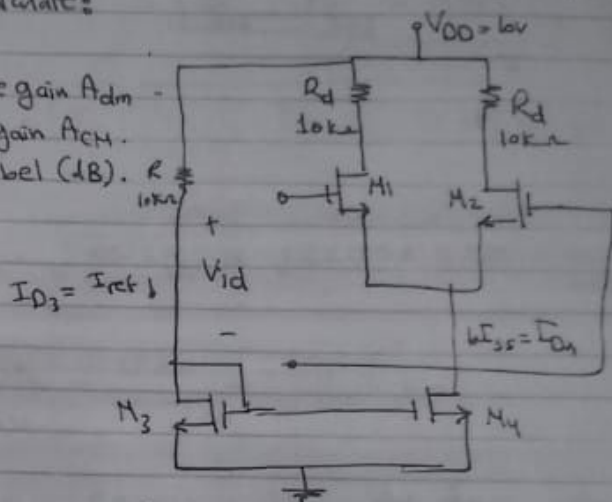 gain Adm -
gain ACM.
(dB).
VDD = 10V
Rd
10kΩ
Rd
10kΩ
R
10kΩ
M1
M2
+
Vid
-
ID3 = Iref ↓
↓Iss = ID4
M3
M4